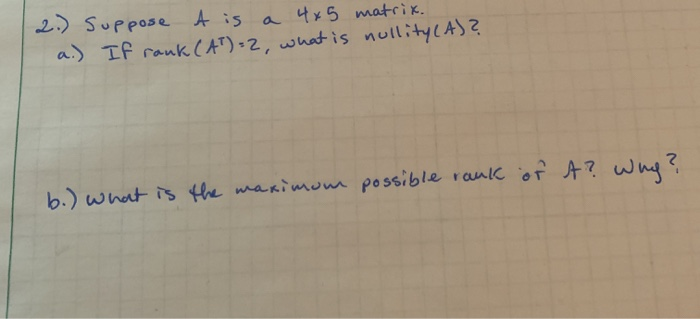 2.) Suppose A is a 4x5 matrix.
a.) If rank(Aᵀ)=2, what is nullity(A)?
b.) what is the maximum possible rank of A? Why?